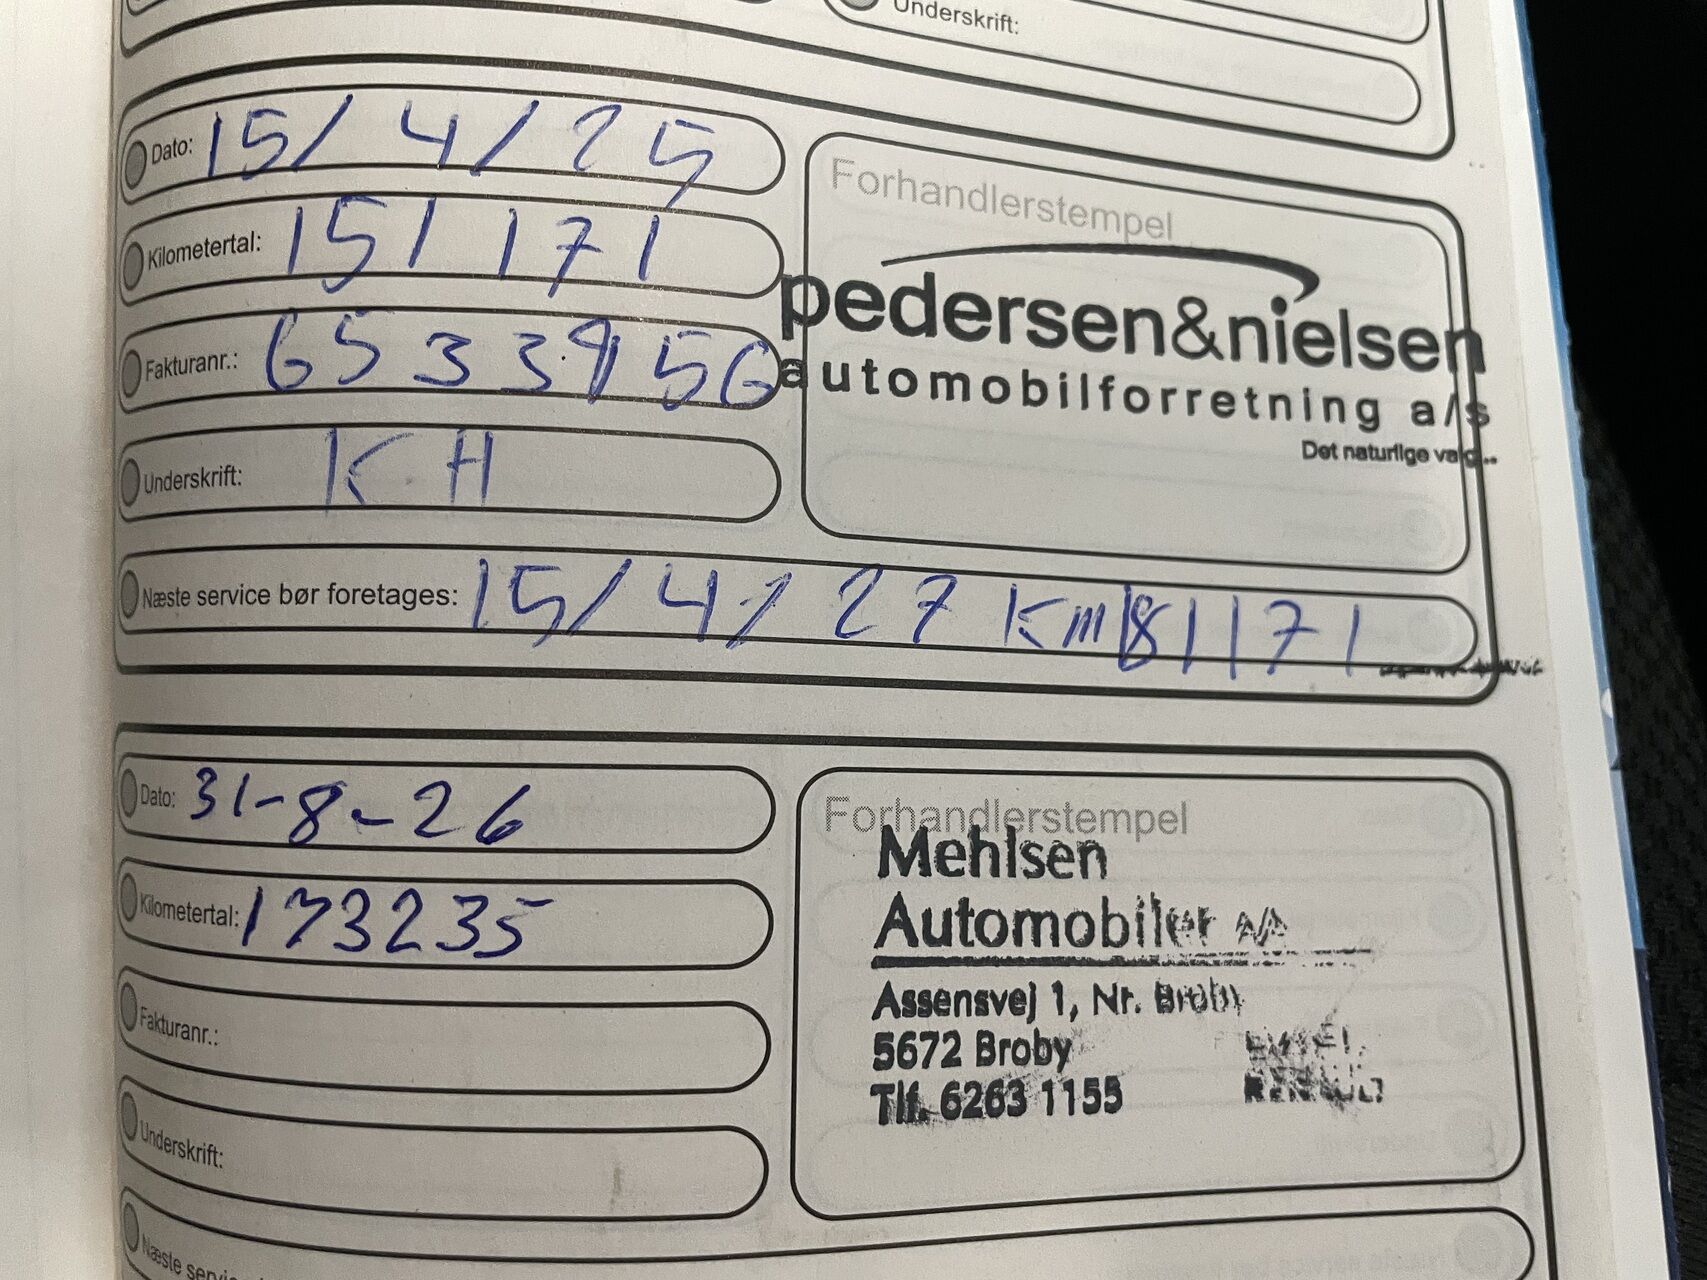 Underskrift:
Dato: 15/4/25
Kilometertal: 151171
Fakturanr.: 6533956
Underskrift: KH
Forhandlerstempel
pedersen&nielsen
automobilforretning a/s
Det naturlige valg...
Næste service bør foretages: 15/4/27 Km 181171
Dato: 31-8-26
Kilometertal: 173235
Fakturanr.:
Underskrift:
Forhandlerstempel
Mehlsen
Automobiler
Assensvej 1, Nr. Broby
5672 Broby
Tlf. 6263 1155
Næste